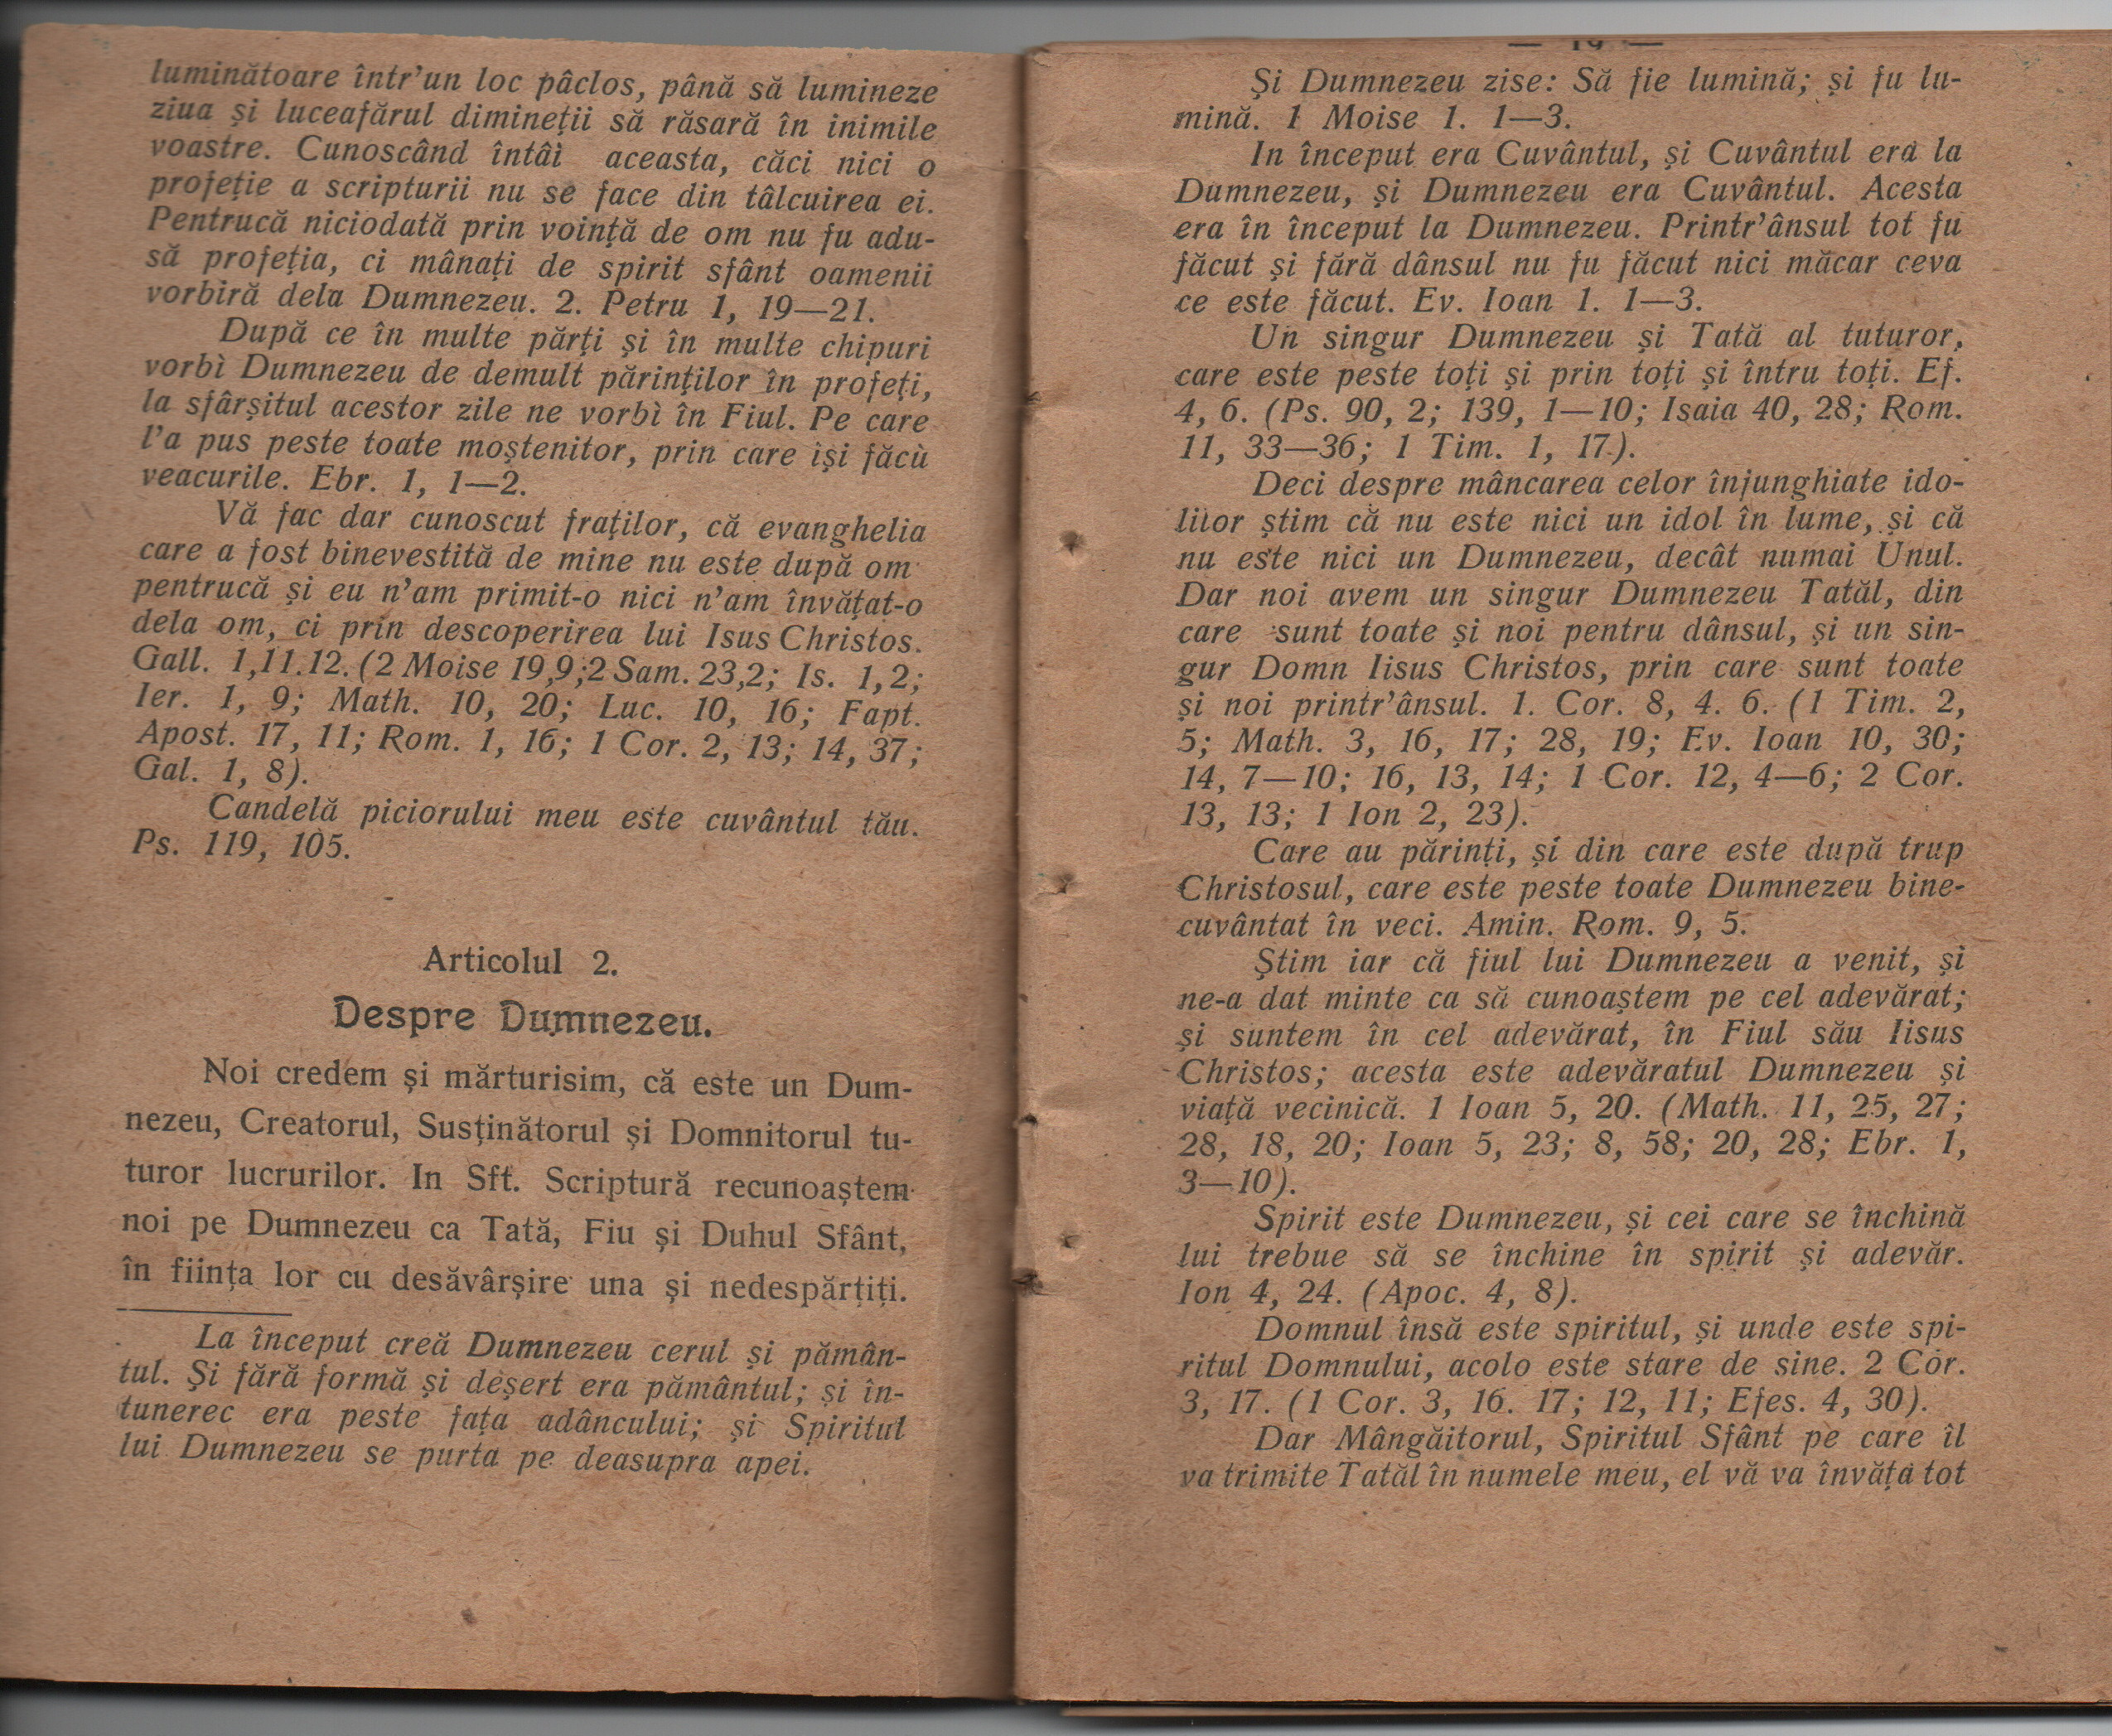 luminătoare într'un loc pâclos, până să lumineze
ziua și luceafărul dimineții să răsară în inimile
voastre. Cunoscând întâi aceasta, căci nici o
profeție a scripturii nu se face din tâlcuirea ei.
Pentrucă niciodată prin voință de om nu fu adu-
să profeția, ci mânați de spirit sfânt oamenii
vorbiră dela Dumnezeu. 2. Petru 1, 19—21.
După ce în multe părți și în multe chipuri
vorbì Dumnezeu de demult părinților în profeți,
la sfârșitul acestor zile ne vorbì în Fiul. Pe care
l'a pus peste toate moștenitor, prin care iși făcù
veacurile. Ebr. 1, 1—2.
Vă fac dar cunoscut fraților, că evanghelia
care a fost binevestită de mine nu este după om
pentrucă și eu n'am primit-o nici n'am învățat-o
dela om, ci prin descoperirea lui Isus Christos.
Gall. 1,11.12. (2 Moise 19,9; 2 Sam. 23,2; Is. 1,2;
Ier. 1, 9; Math. 10, 20; Luc. 10, 16; Fapt.
Apost. 17, 11; Rom. 1, 16; 1 Cor. 2, 13; 14, 37;
Gal. 1, 8).
Candelă piciorului meu este cuvântul tău.
Ps. 119, 105.
Articolul 2.
Despre Dumnezeu.
Noi credem și mărturisim, că este un Dum-
nezeu, Creatorul, Susținătorul și Domnitorul tu-
turor lucrurilor. In Sft. Scriptură recunoaștem
noi pe Dumnezeu ca Tată, Fiu și Duhul Sfânt,
în ființa lor cu desăvârșire una și nedespărțiți.
La început creă Dumnezeu cerul și pămân-
tul. Și fără formă și deșert era pământul; și în-
tunerec era peste fața adâncului; și Spiritul
lui Dumnezeu se purta pe deasupra apei.
— 19 —
Și Dumnezeu zise: Să fie lumină; și fu lu-
mină. 1 Moise 1. 1—3.
In început era Cuvântul, și Cuvântul era la
Dumnezeu, și Dumnezeu era Cuvântul. Acesta
era în început la Dumnezeu. Printr'ânsul tot fu
făcut și fără dânsul nu fu făcut nici măcar ceva
ce este făcut. Ev. Ioan 1. 1—3.
Un singur Dumnezeu și Tată al tuturor,
care este peste toți și prin toți și întru toți. Ef.
4, 6. (Ps. 90, 2; 139, 1—10; Isaia 40, 28; Rom.
11, 33—36; 1 Tim. 1, 17.).
Deci despre mâncarea celor înjunghiate ido-
lilor știm că nu este nici un idol în lume, și că
nu este nici un Dumnezeu, decât numai Unul.
Dar noi avem un singur Dumnezeu Tatăl, din
care sunt toate și noi pentru dânsul, și un sin-
gur Domn Iisus Christos, prin care sunt toate
și noi printr'ânsul. 1. Cor. 8, 4. 6. (1 Tim. 2,
5; Math. 3, 16, 17; 28, 19; Ev. Ioan 10, 30;
14, 7—10; 16, 13, 14; 1 Cor. 12, 4—6; 2 Cor.
13, 13; 1 Ion 2, 23).
Care au părinți, și din care este după trup
Christosul, care este peste toate Dumnezeu bine-
cuvântat în veci. Amin. Rom. 9, 5.
Știm iar că fiul lui Dumnezeu a venit, și
ne-a dat minte ca să cunoaștem pe cel adevărat;
și suntem în cel adevărat, în Fiul său Iisus
Christos; acesta este adevăratul Dumnezeu și
viață vecinică. 1 Ioan 5, 20. (Math. 11, 25, 27;
28, 18, 20; Ioan 5, 23; 8, 58; 20, 28; Ebr. 1,
3—10).
Spirit este Dumnezeu, și cei care se închină
lui trebue să se închine în spirit și adevăr.
Ion 4, 24. (Apoc. 4, 8).
Domnul însă este spiritul, și unde este spi-
ritul Domnului, acolo este stare de sine. 2 Cor.
3, 17. (1 Cor. 3, 16. 17; 12, 11; Efes. 4, 30).
Dar Mângăitorul, Spiritul Sfânt pe care îl
va trimite Tatăl în numele meu, el vă va învăța tot